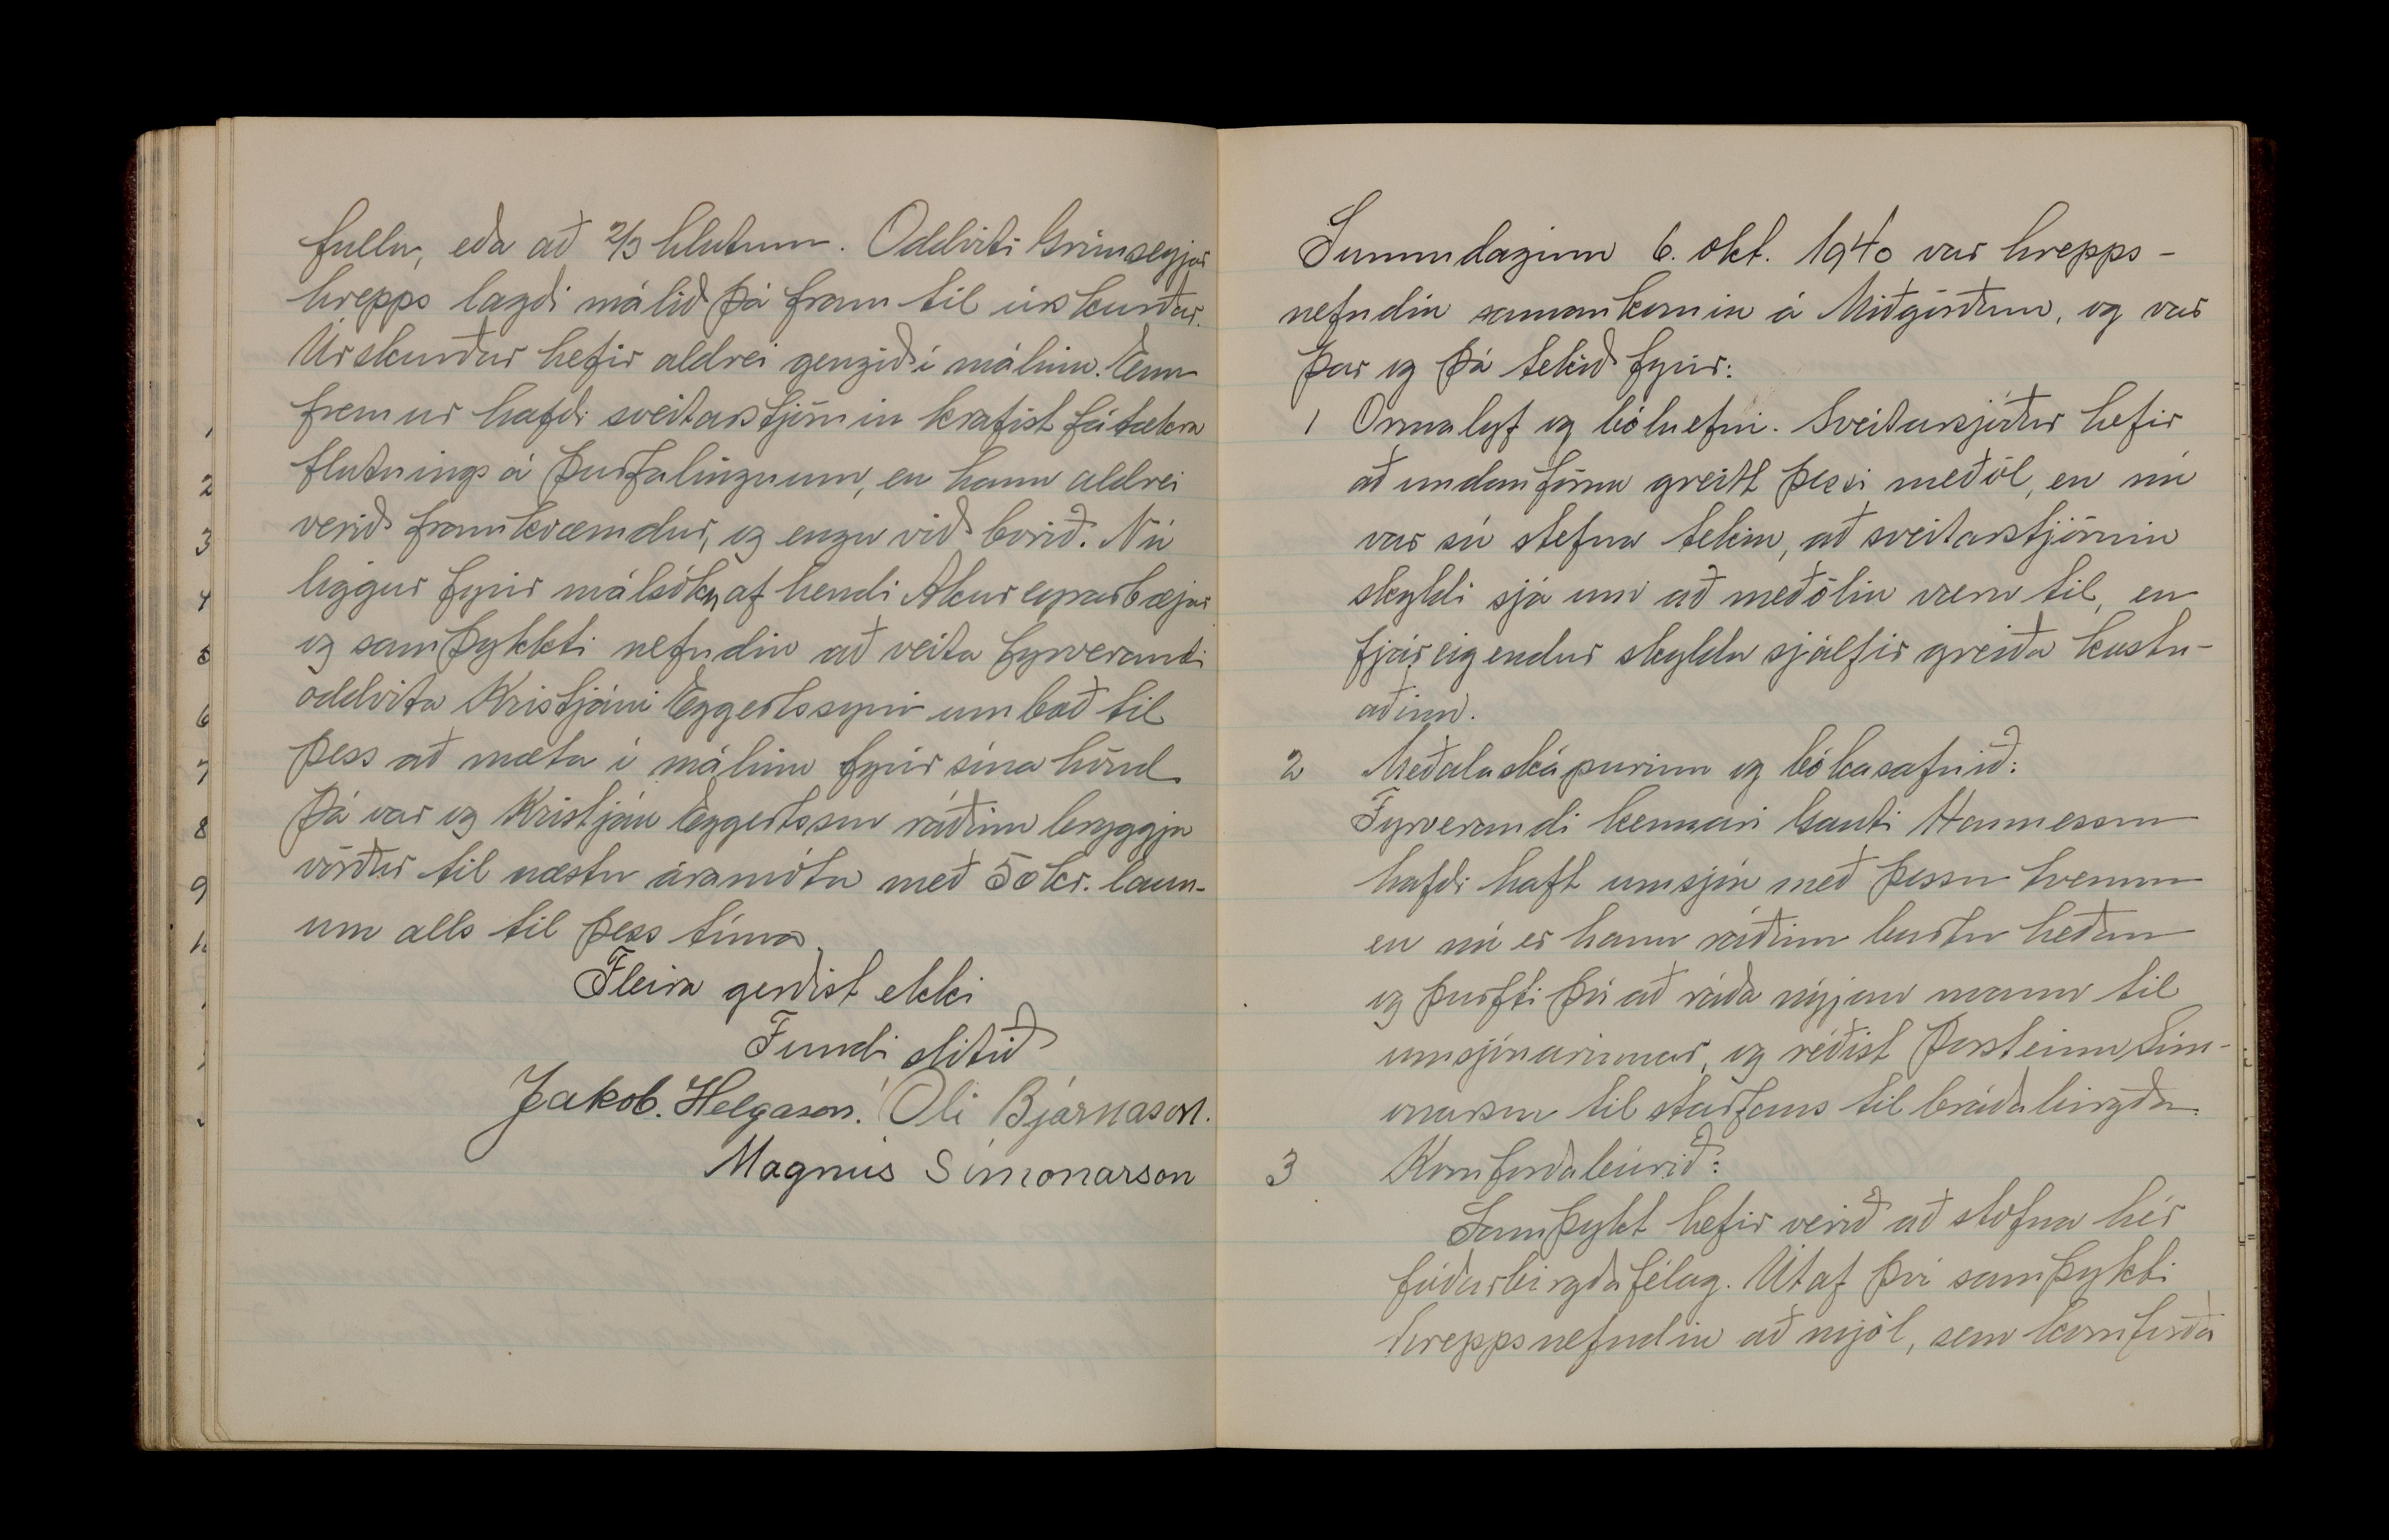 fullu, eða að 2/3 hlutum. Oddviti Grímseyjar
hrepps lagði málið þá fram til úrskurðar.
Úrskurður hefir aldrei gengið í málinu. Enn
fremur hafði sveitarstjórnin krafist fátækra
flutnings á þurfalingnum, en hann aldrei
verið framkvæmdur, og engu við borið. Nú
liggur fyrir málsókn af hendi Akureyrarbæjar
og samþykkti nefndin að veita fyrverandi
oddvita Kristjáni Eggertssyni umboð til
þess að mæta í málinu fyrir sína hönd.
Þá var og Kristján Eggertsson ráðinn bryggju
vörður til næstu áramóta með 50 kr. laun-
um alls til þess tíma.
Fleira gerðist ekki
Fundi slitið
Jakob. Helgason. Óli Bjarnason.
Magnús Símonarson
Sunnudaginn 6. okt. 1940 var hrepps-
nefndin samankomin á Miðgörðum, og var
þar og þá tekið fyrir:
1 Ormalyf og bóluefni. Sveitarsjóður hefir
að undanförnu greitt þessi meðöl, en nú
var sú stefna tekin, að sveitarstjórnin
skyldi sjá um að meðölin væru til, en
fjáreigendur skyldu sjálfir greiða kostn-
aðinn.
2 Meðalaskápurinn og bókasafnið:
Fyrverandi kennari Gauti Hannesson
hafði haft umsjón með þessu hvoru
en nú er hann ráðinn burtu héðan
og þurfti því að ráða nýjan mann til
umsjónarinnar, og réðist Þorsteinn Sím-
onarson til starfans til bráðabirgða.
3 Kornforðabúrið:
Samþykt hefir verið að stofna hér
fóðurbirgðafélag. Útaf því samþykti
hreppsnefndin að mjöl, sem kornforða